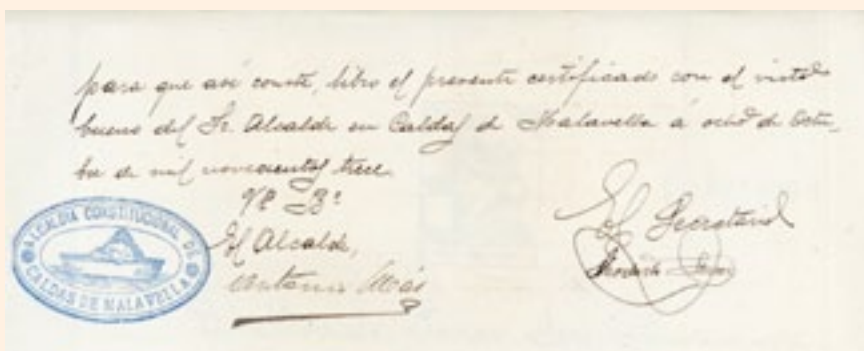 para que asi conste, libro el presente certificado con el visto
bueno del Sr. Alcalde en Caldas de Malavella á ocho de Octu-
bre de mil novecientos trece.
Vº Bº
El Alcalde,
Antonio Mas
El Secretario
ALCALDIA CONSTITUCIONAL DE
CALDAS DE MALAVELLA